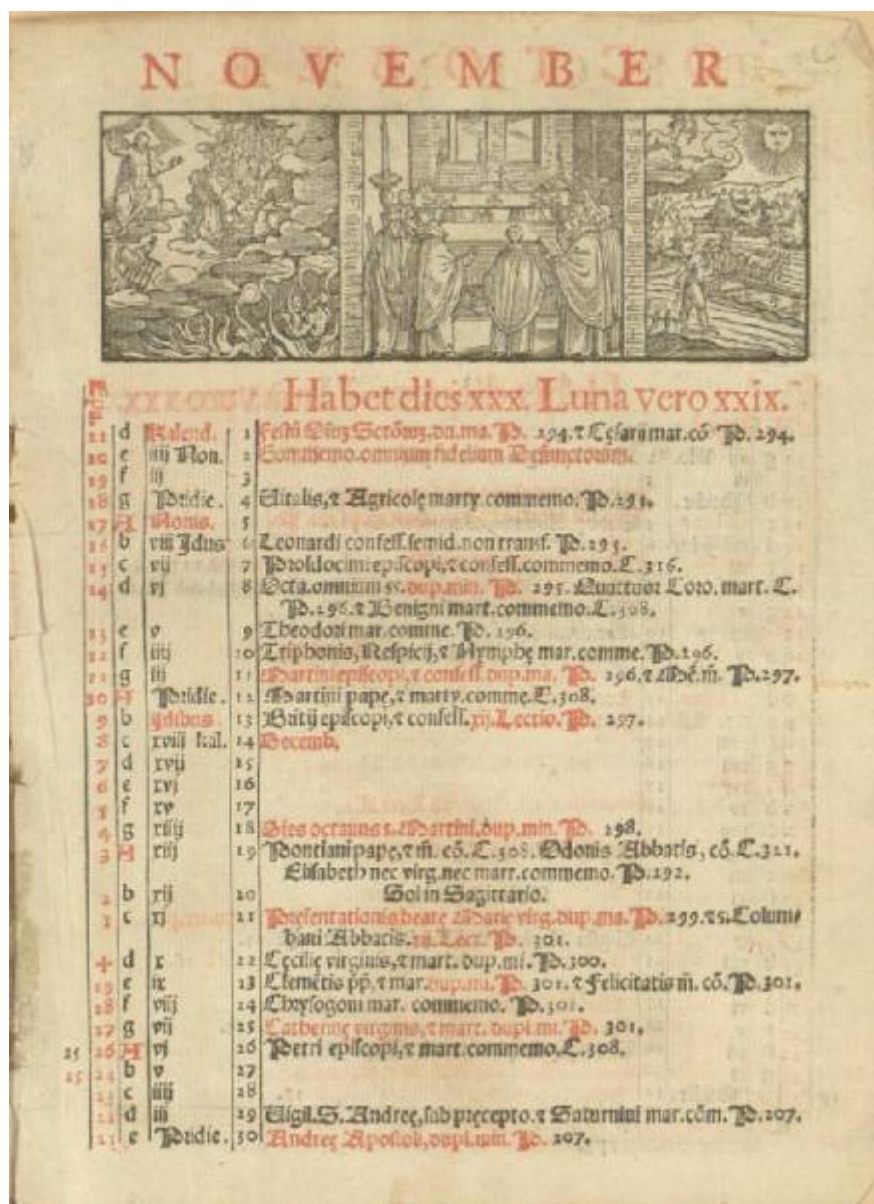 NOVEMBER
Habet dies xxx. Luna vero xxix.
d Kalend. 1 Festū Oīuꝫ Sctōruꝫ, du. ma. P. 294. ⁊ Cęsarii mar. cō. P. 294.
20 e iiij Non. 2 Commemo. omnium fidelium Defunctorum.
19 f iij 3
18 g Pridie. 4 Vitalis, ⁊ Agricolę marty. commemo. P. 295.
17 A Nonis. 5
16 b viij Idus 6 Leonardi confess. semid. non transf. P. 295.
15 c vij 7 Prosdocimi episcopi, ⁊ confess. commemo. C. 316.
14 d vj 8 Octa. omnium ss. dup. min. P. 295. Quattuor Coro. mart. C.
P. 296. ⁊ Benigni mart. commemo. C. 308.
13 e v 9 Theodori mar. comme. P. 296.
12 f iiij 10 Triphonis, Respicij, ⁊ Nymphę mar. comme. P. 296.
11 g iij 11 Martini episcopi, ⁊ confess. dup. ma. P. 296. ⁊ Mē. m̄. P. 297.
10 A Pridie. 12 Martini pape, ⁊ marty. comme. C. 308.
9 b Idibus 13 Britij episcopi, ⁊ confess. xij. Lectio. P. 297.
8 c xviij kal. 14 Decemb.
7 d xvij 15
6 e xvj 16
5 f xv 17
4 g xiiij 18 Dies octauus s. Martini. dup. min. P. 298.
3 A xiij 19 Pontiani pape, ⁊ m̄. cō. C. 308. Odonis Abbatis, cō. C. 321.
Elisabeth nec virg. nec mart. commemo. P. 292.
2 b xij 20 Sol in Sagittario.
1 c xj 21 Presentationis beate Marie virg. dup. ma. P. 299. ⁊ s. Colum-
bani Abbatis. xij. Lect. P. 301.
+ d x 22 Cęcilię virginis, ⁊ mart. dup. mi. P. 300.
29 e ix 23 Clemētis pp̄, ⁊ mar. dup. mi. P. 301. ⁊ Felicitatis m̄. cō. P. 301.
28 f viij 24 Chrysogoni mar. commemo. P. 301.
27 g vij 25 Catherinę virginis, ⁊ mart. dupl. mi. P. 301.
25 26 A vj 26 Petri episcopi, ⁊ mart. commemo. C. 308.
25 24 b v 27
23 c iiij 28
22 d iij 29 Vigil. S. Andreę, sub pręcepto. ⁊ Saturnini mar. cōm. P. 207.
21 e Pridie. 30 Andreę Apostoli, dupl. mm. P. 207.